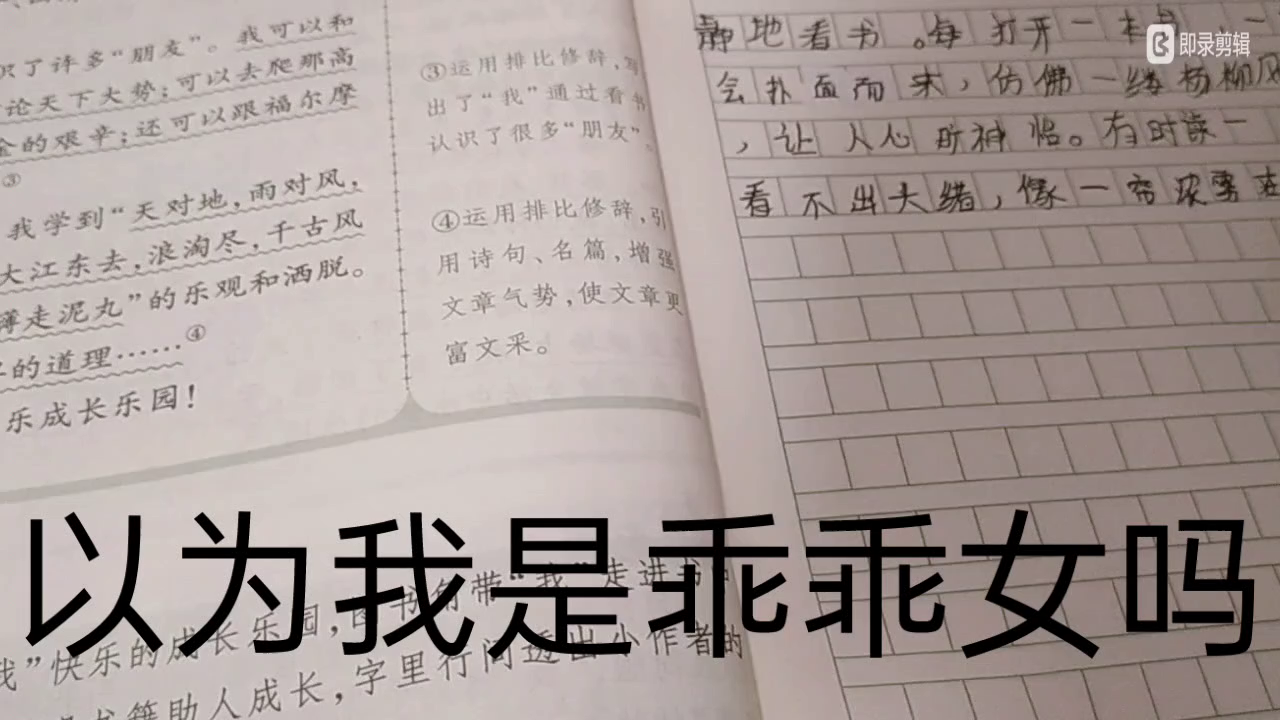 识了许多“朋友”。我可以和
论天下大势;可以去爬那高
的艰辛;还可以跟福尔摩
③
我学到“天对地,雨对风,
大江东去,浪淘尽,千古风
薄走泥丸”的乐观和洒脱。
的道理……④
乐成长乐园!
③运用排比修辞,写
出了“我”通过看书
认识了很多“朋友”。
④运用排比修辞,引
用诗句、名篇,增强
文章气势,使文章更
富文采。
我”快乐的成长乐园,图书角带“我”走进书中
书籍助人成长,字里行间透出小作者的
静地看书。每打开一本书
会扑面而来,仿佛一缕杨柳风
,让人心旷神怡。有时读一
看不出大绪,像一帘浓雾
即录剪辑
以为我是乖乖女吗